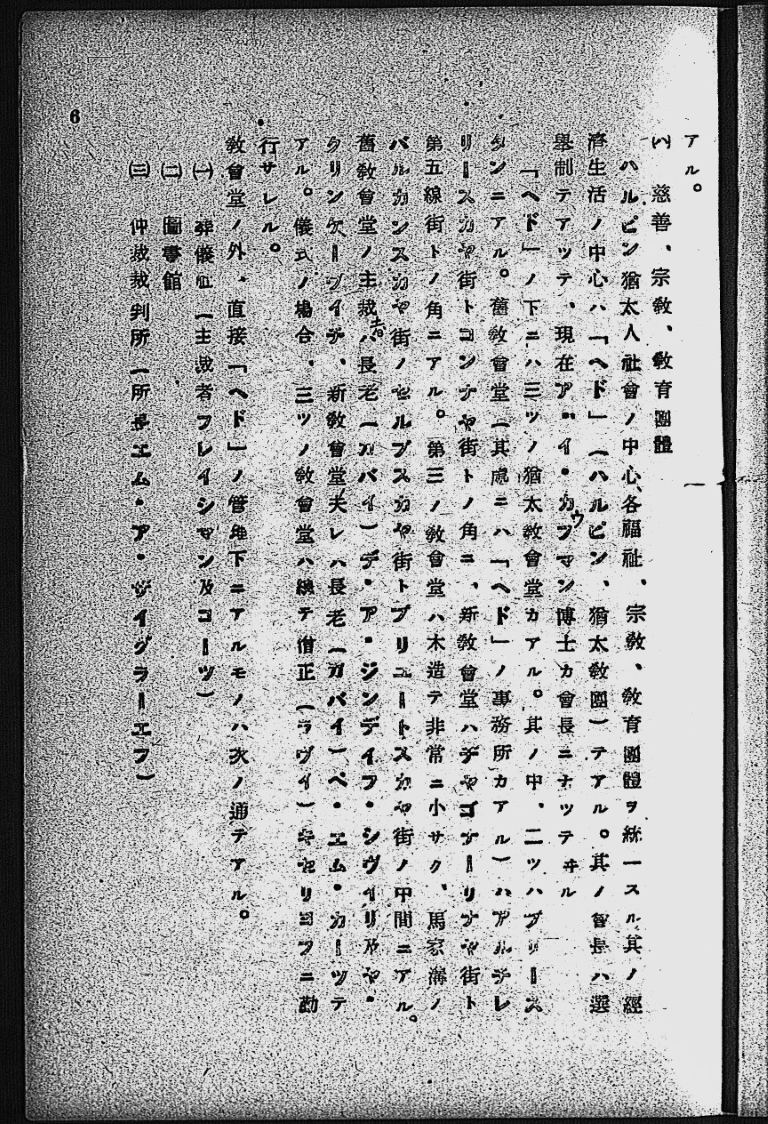 アル。
(ハ) 慈善、宗敎、敎育團體
ハルビン猶太人社會ノ中心、各福祉、宗敎、敎育團體ヲ統一スル其ノ經
濟生活ノ中心ハ「ヘド」(ハルビン、猶太敎團)テアル。其ノ會長ハ選
擧制テアツテ、現在ア・イ・カウフマン博士カ會長ニナツテヰル
「ヘド」ノ下ニハ三ツノ猶太敎會堂カアル。其ノ中、二ツハプリース
タンニアル。舊敎會堂(其處ニハ「ヘド」ノ事務所カアル)ハアルチレ
リースカヤ街トコンナヤ街トノ角ニ、新敎會堂ハヂヤゴナーリナヤ街ト
第五線街トノ角ニアル。第三ノ敎會堂ハ木造テ非常ニ小サク、馬家溝ノ
バルカンスカヤ街ノセルブスカヤ街トプリユートスカヤ街ノ中間ニアル。
舊敎會堂ノ主裁者ハ長老(ガバイ)デ・ア・ジンデイフ・シヴイリ及ヤ・
クリンゲーブイチ、新敎會堂夫レハ長老(ガバイ)ペ・エム・カーツテ
アル。儀式ノ場合、三ツノ敎會堂ハ總テ僧正(ラヴイ)キセリヨフニ勸
行サレル。
敎會堂ノ外、直接「ヘド」ノ管理下ニアルモノハ次ノ通テアル。
(一) 葬儀社(主裁者フレイシマン及コーツ)
(二) 圖書館
(三) 仲裁裁判所(所長エム・ア・ヅイグラーエフ)
6